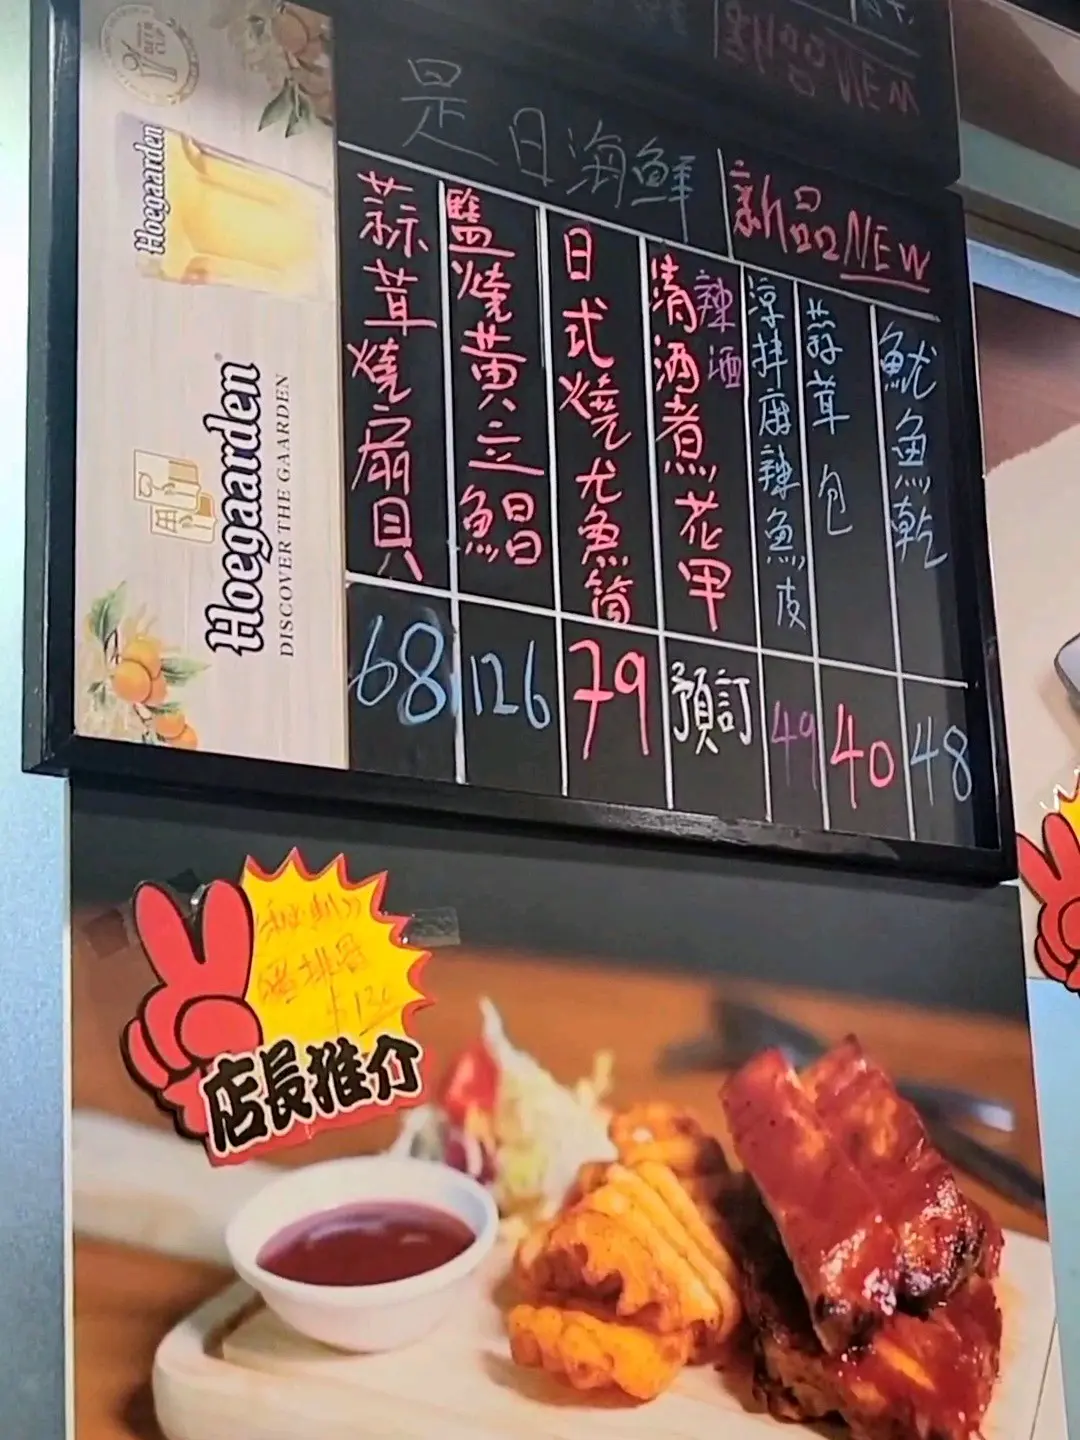 Hoegaarden
Hoegaarden
DISCOVER THE GAARDEN
是日海鮮
新品 NEW
蒜茸燒扇貝
68
鹽燒黃立鯧
126
日式燒尤魚筒
79
清酒煮花甲
辣酒
預訂
涼拌麻辣魚皮
49
蒜茸包
40
魷魚乾
48
豬排骨
店長推介